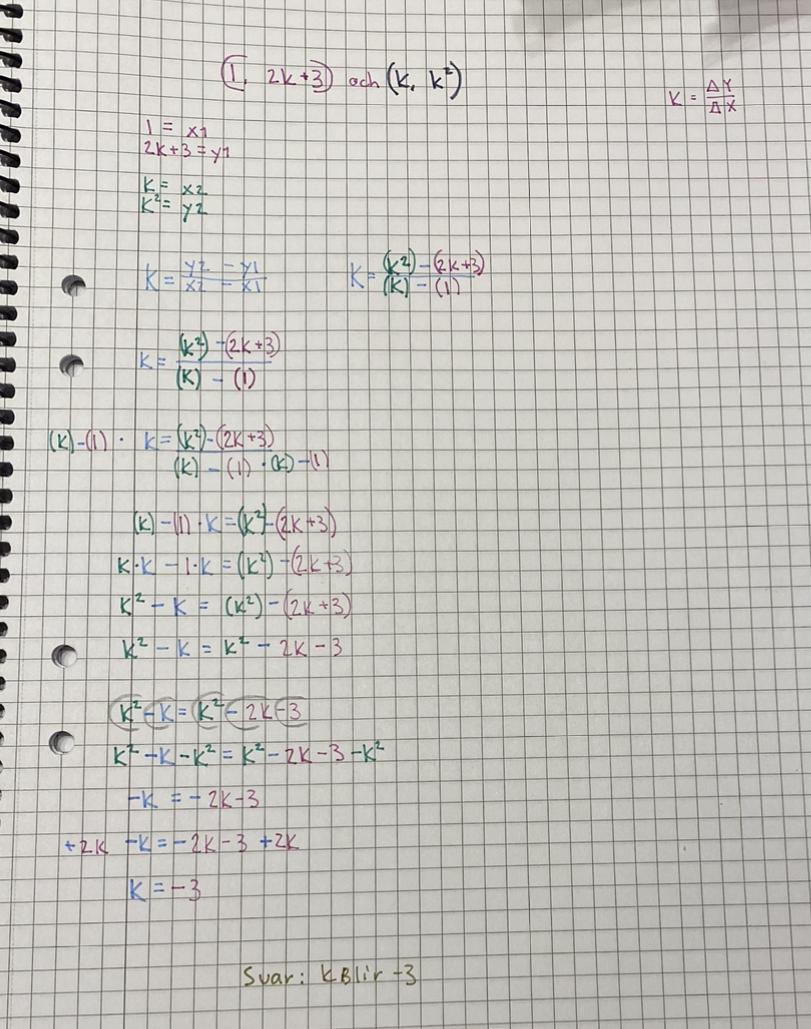 (1, 2k+3) och (k, k²)
k = ΔY/ΔX
1 = x1
2k+3 = y1
k = x2
k² = y2
k = (y2 - y1)/(x2 - x1)
k = ((k²) - (2k+3))/((k) - (1))
k = ((k²) - (2k+3))/((k) - (1))
(k)-(1) · k = ((k²) - (2k+3))/((k) - (1)) · (k) - (1)
(k) - (1) · k = (k²) - (2k+3)
k·k - 1·k = (k²) - (2k+3)
k² - k = (k²) - (2k+3)
k² - k = k² - 2k - 3
k² - k = k² - 2k - 3
k² - k - k² = k² - 2k - 3 - k²
-k = -2k-3
+2k -k = -2k-3 +2k
k = -3
Svar: k Blir -3